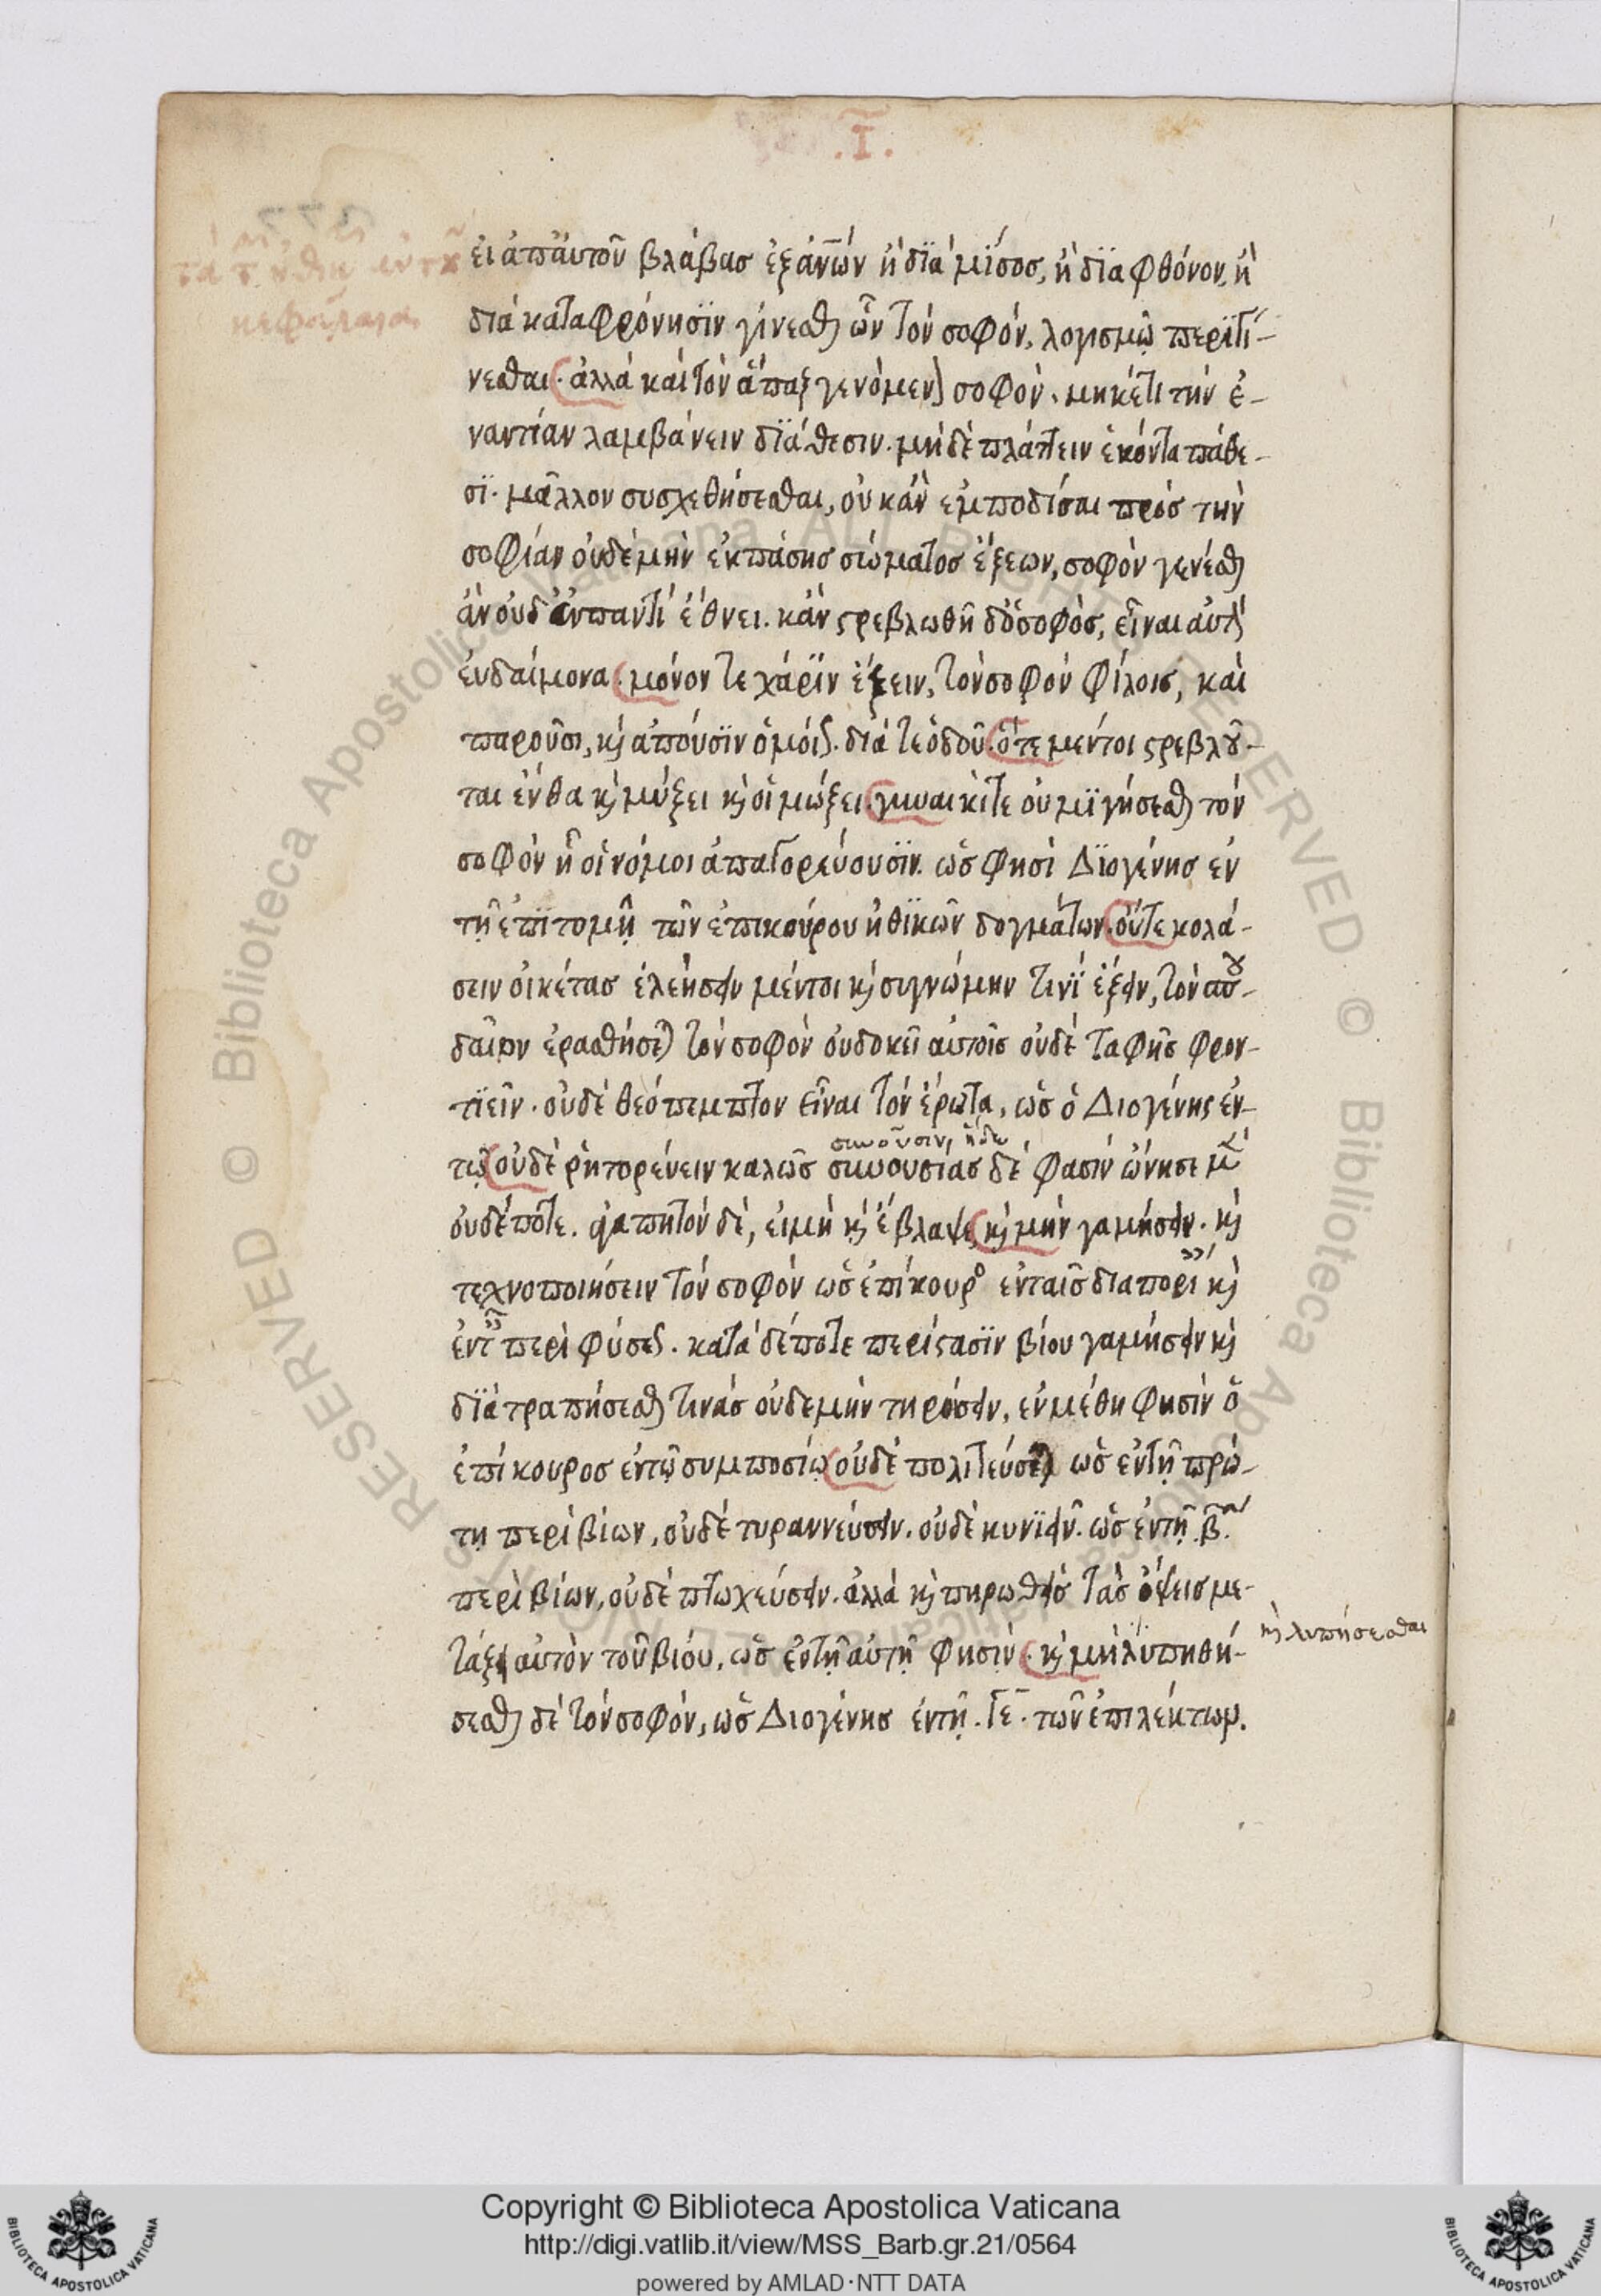 .Ι.
κεφάλαια
ἐι ἀπἀυτοῦ βλάβασ ἐξ ἀν̅ων ἢ δϊὰ μῖσοσ, ἢ δϊα φθόνον, ἢ
διὰ καταφρόνησϊν γίνεσθαι ὧν τὸν σοφόν, λογισμῷ περϊτί-
νεσθαι. ἀλλὰ καὶ τὸν ἅπαξ γενόμενον σοφόν. μηκέτι τὴν ἐ-
ναντίαν λαμβάνειν δϊάθεσιν. μὴ δὲ πλάττειν ἑκόντα πάθε-
σϊ. μᾶλλον συσχεθήσεσθαι, οὐκ ἂν ἐμποδίσαι πρὸσ τὴν
σοφίαν οὐδὲ μὴν ἐκ πάσησ σώματοσ ἕξεων, σοφὸν γενέσθαι
ἂν οὐδ ἐν παντὶ ἔθνει. κἂν στρεβλωθῆ δ ὁ σοφὸσ, εἶναι αὐτὸν
ἐυδαίμονα. μόνον τε χάρϊν ἕξειν, τὸν σοφὸν φίλοισ, καὶ
παροῦσι, κὶ ἀποῦσϊν ὁμοίως. διά τε ὁδοῦ. ὅτε μέντοι στρεβλοῦ-
ται ἔνθα κὶ μύξει κὶ οἰμώξει. γυναικί τε οὐ μϊγήσεσθαι τὸν
σοφὸν ἧ οἱ νόμοι ἀπαγορεύουσϊν. ὥσ φησι Δϊογένησ ἐν
τῆ ἐπϊτομῆ τῶν ἐπικούρου ἠθϊκῶν δογμάτων. οὔτε κολά-
σειν οἰκέτασ ἐλεήσειν μέντοι κὶ συγνώμην τινϊ ἕξειν, τὸν σπου-
δαίων ἐρασθήσεται τὸν σοφὸν οὐ δοκεῖ αὐτοῖσ οὐδὲ ταφῆσ φρον-
τϊεῖν. οὐδὲ θεόπεμπτον εἶναι τὸν ἔρωτα, ὡσ ὁ Διογένης ἐν-
συνοῦσιν, ἤδε
τῷ οὐδὲ ῥητορένειν καλῶσ συνουσίασ δέ φασιν ὤνησε μὲν
οὐδέποτε. ἀγαπητὸν δὲ, εἰ μὴ κὶ ἔβλαψε κὶ μὴν γαμήσειν. κὶ
τεχνοποιήσειν τὸν σοφὸν ὡσ ἐπίκουρος ἐν ταῖσ διαπορί κὶ
ἐν τ περὶ φύσεως. κατὰ δέ ποτε περίστασϊν βίου γαμήσειν κὶ
δϊατραπήσεσθαι τινάσ οὐδὲ μὴν τηρήσειν, ἐν μέθη φησὶν ὁ
ἐπίκουροσ ἐν τῷ συμποσίῳ οὐδὲ πολιτεύσεται ὡσ ἐν τῆ πρώ-
τη περὶ βίων, οὐδὲ τυραννεύσειν. οὐδὲ κυνϊεῖν. ὡσ ἐν τῆ .β.
περὶ βίων, οὐδὲ πτωχεύσειν. ἀλλὰ κὶ πηρωθεὶσ τὰσ ὄψεισ με-
τάξει αὐτὸν τοῦ βίου, ὡσ ἐν τῆ αὐτῆ φησὶν. κὶ μὴ λϋπηθή-
κὶ λυπήσεσθαι
σεσθαι δὲ τὸν σοφόν, ὡσ Διογένησ ἐν τῆ .ΓΕ. τῶν ἐπιλέκτων.
© Biblioteca Apostolica Vaticana ALL RIGHTS RESERVED © Biblioteca Apostolica Vaticana ALL RIGHTS RESERVED
Copyright © Biblioteca Apostolica Vaticana
http://digi.vatlib.it/view/MSS_Barb.gr.21/0564
powered by AMLAD·NTT DATA
BIBLIOTECA APOSTOLICA VATICANA
BIBLIOTECA APOSTOLICA VATICANA